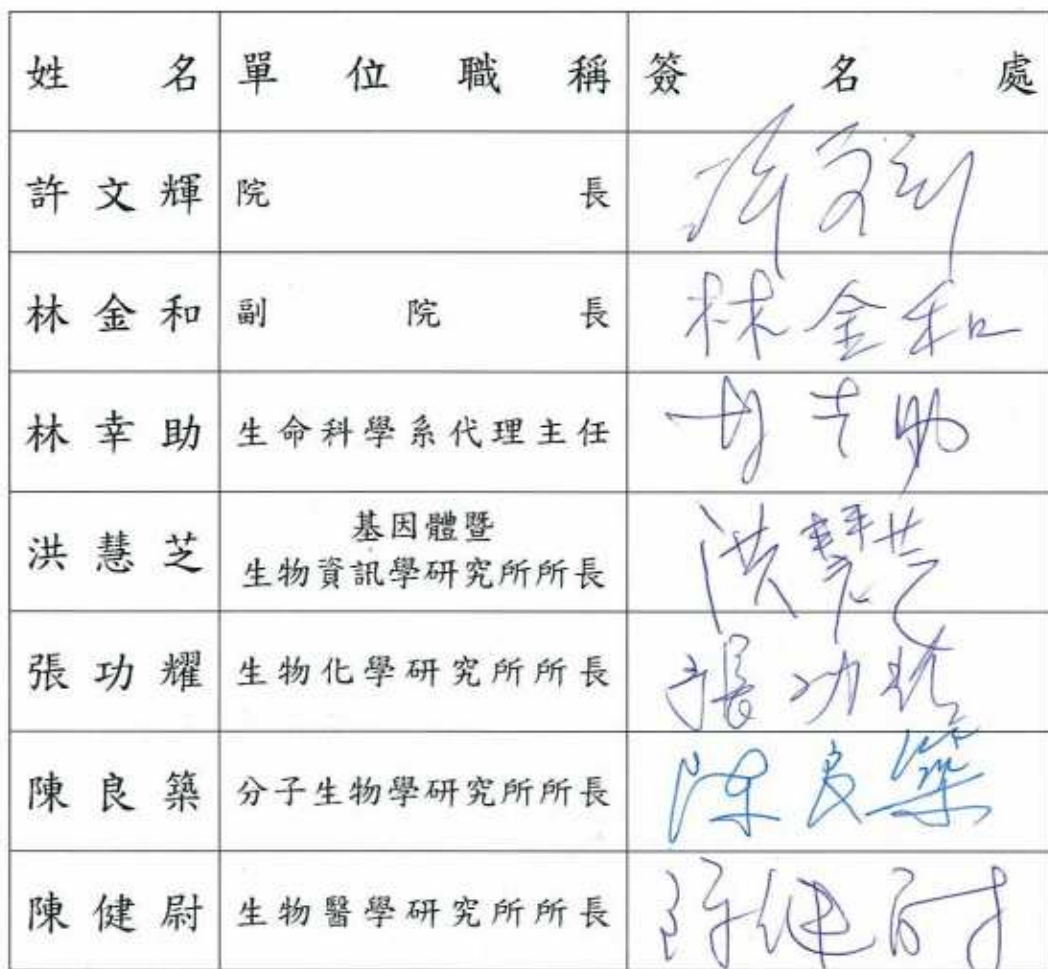 姓名 單位職稱 簽名處
許文輝 院長
林金和 副院長 林金和
林幸助 生命科學系代理主任
洪慧芝 基因體暨
生物資訊學研究所所長 洪慧芝
張功耀 生物化學研究所所長 張功耀
陳良築 分子生物學研究所所長 陳良築
陳健尉 生物醫學研究所所長 陳健尉